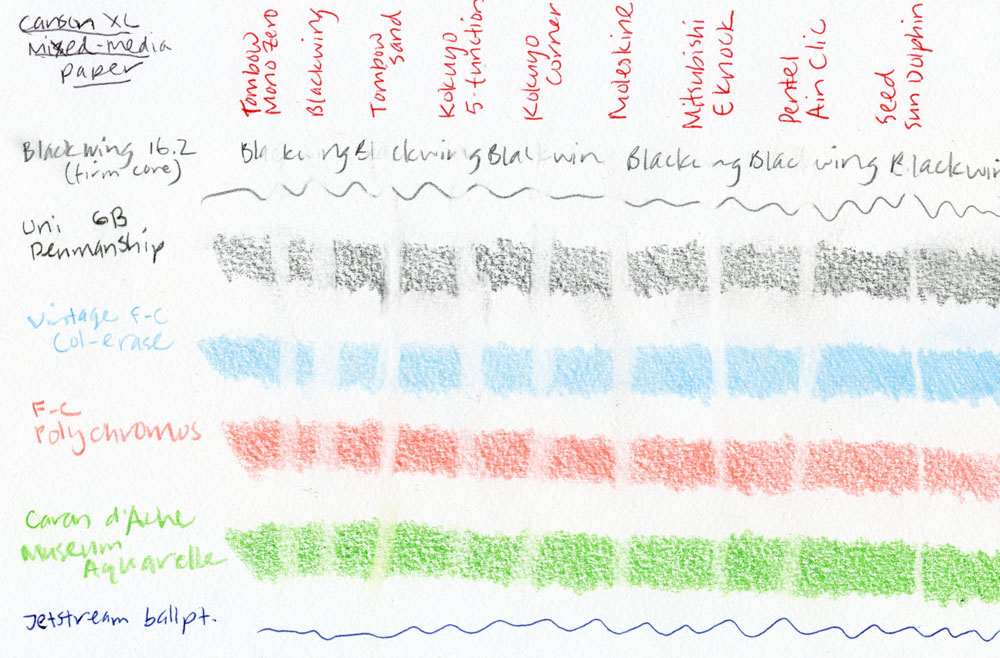 Canson XL
Mixed-media
paper
Tombow
Mono Zero
Blackwing
Tombow
Sand
Kokuyo
5-function
Kokuyo
Corner
Moleskine
Mitsubishi
E knock
Pentel
Ain Clic
Seed
Sun Dolphin
Blackwing 16.2
(firm core)
Blackw ng Bl ackwing Blackwin Blackw ng Blac wing Blackwin
Uni 6B
Penmanship
Vintage F-C
Col-erase
F-C
Polychromos
Caran d'Ache
Museum
Aquarelle
Jetstream ballpt.